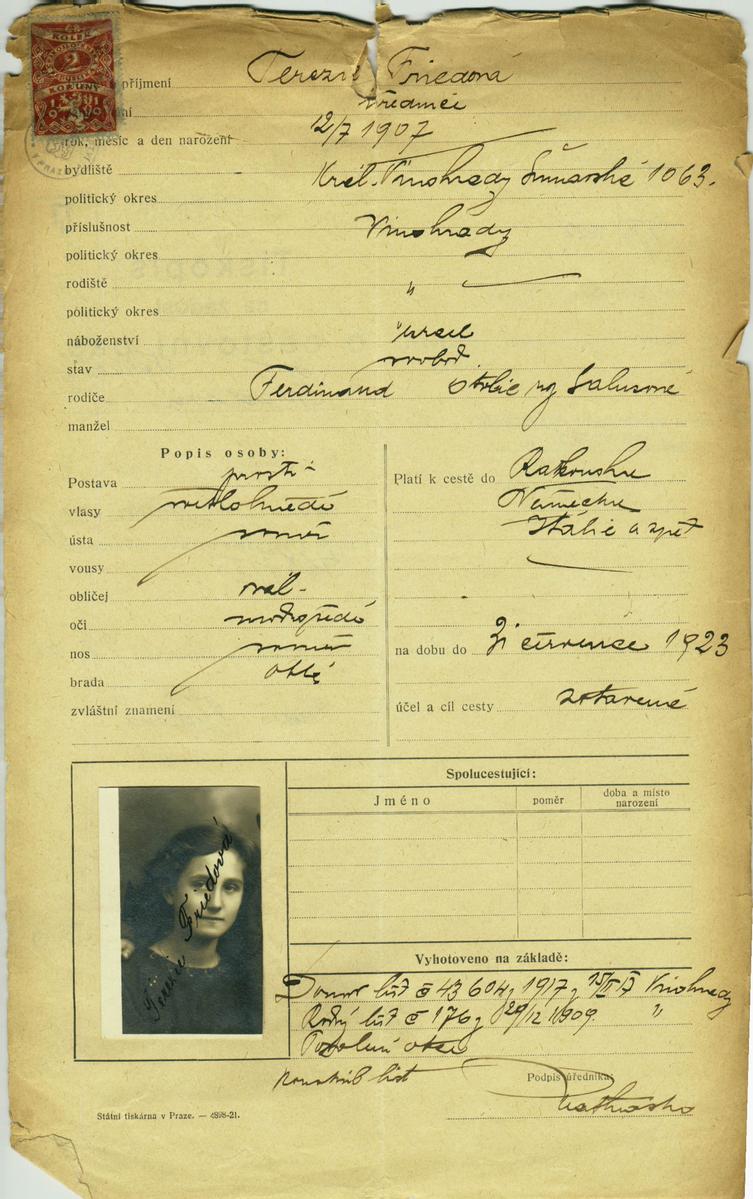 KOLEK
2
KORUNY
příjmení Terezie Friedová
úřednice
rok, měsíc a den narození 12/7 1907
bydliště Král. Vinohrady Šumavská 1063.
politický okres
příslušnost Vinohrady
politický okres
rodiště "
politický okres
náboženství israel
stav svobod.
rodiče Ferdinand Otilie
manžel
Popis osoby:
Postava prostř
vlasy světlohnědé
ústa souměr
vousy
obličej ovál-
oči modrošedé
nos souměr
brada oblá
zvláštní znamení
Platí k cestě do Rakouska
Německa
Itálie a zpět
na dobu do července 1923
účel a cíl cesty zotavená
Terezie Friedová
Spolucestující:
Jméno poměr doba a místo narození
Vyhotoveno na základě:
Domov list č 43 604 z 1917 Vinohrady
Rodný list č 176 z 29/12 1909. "
Povolení otce
list
Podpis úředníka:
Státní tiskárna v Praze. — 4898-21.